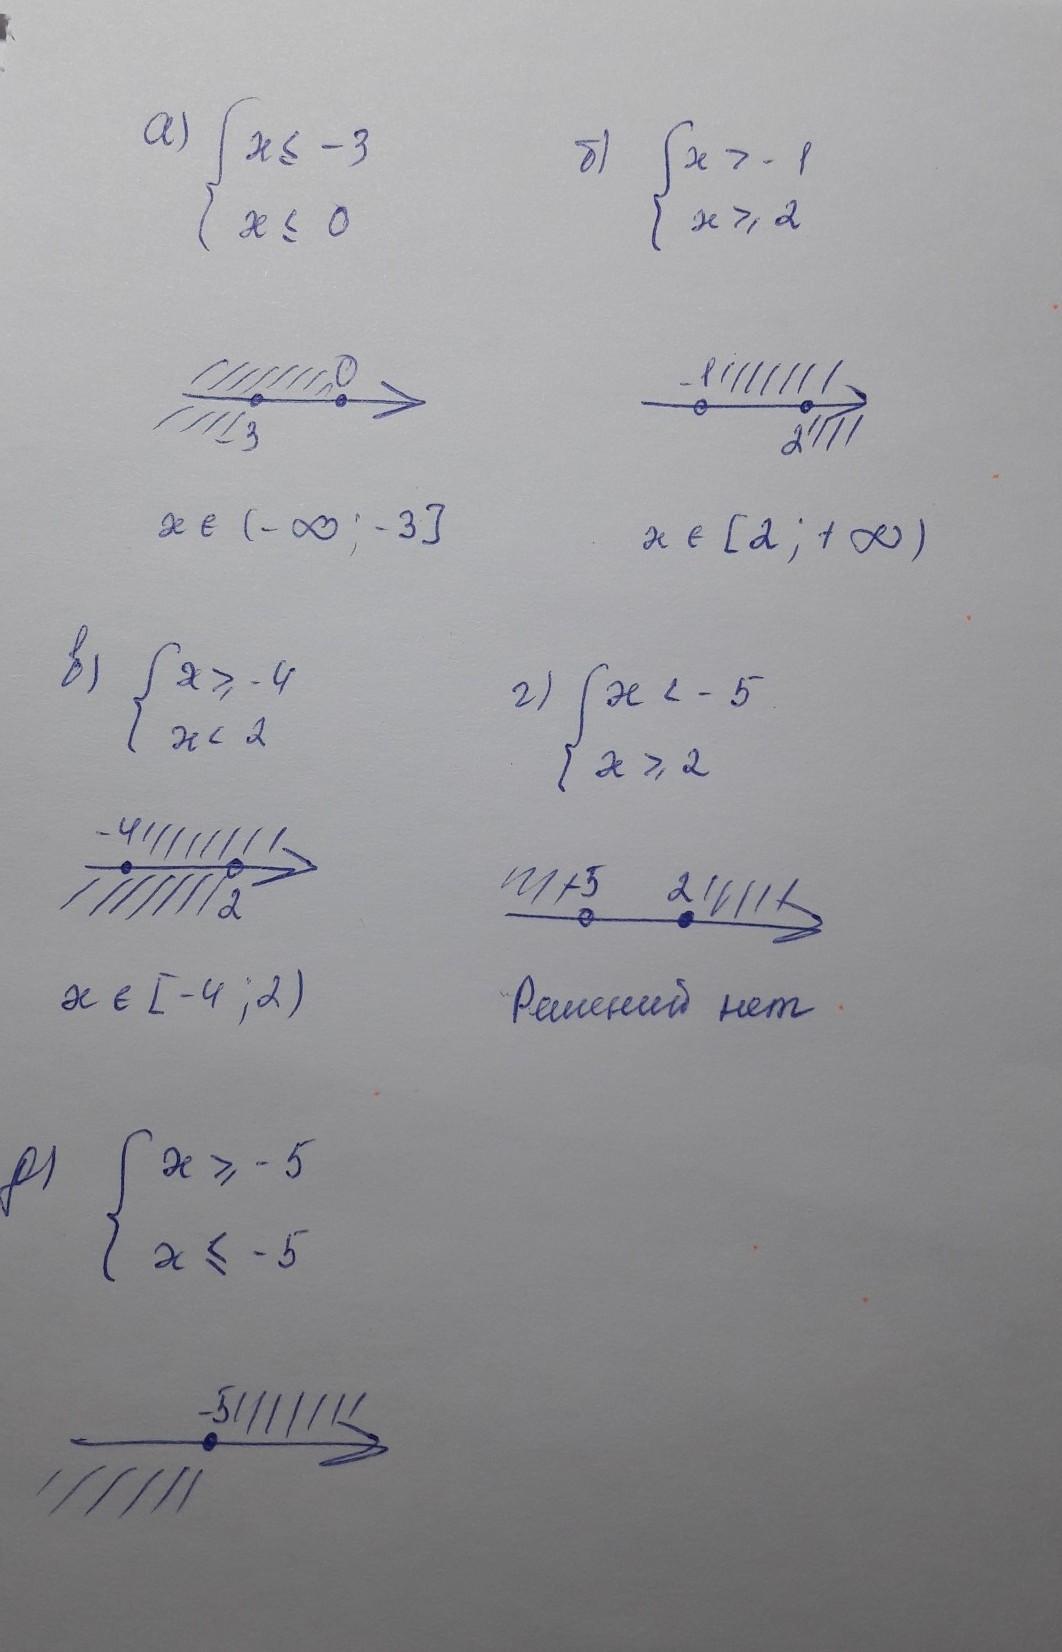 а) { x ≤ -3
x ≤ 0
б) { x > -1
x ⩾ 2
0
-3
-1
2
x ∈ (-∞; -3]
x ∈ [2; +∞)
в) { x ⩾ -4
x < 2
г) { x < -5
x ⩾ 2
-4
2
-5
2
x ∈ [-4; 2)
Решений нет
д) { x ⩾ -5
x ⩽ -5
-5